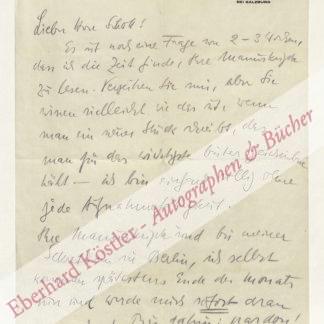 BEI SALZBURG
Lieber Herr Schott!
Es ist noch eine Frage von 2–3 Wochen,
dass ich die Zeit finde, Ihre Manuskripte
zu lesen. Verzeihen Sie mir, aber Sie
wissen vielleicht wie das ist, wenn
man ein neues Stück schreibt, das
man für das wichtigste
hält – ich bin einfach ohne
jede Aufnahmefähigkeit.
Ihre Manuskripte sind bei meiner
in Berlin, ich selbst
spätestens Ende des Monats
hin und werde mich sofort dran
Bis dahin: pardon!
Eberhard Köstler - Autographen & Bücher